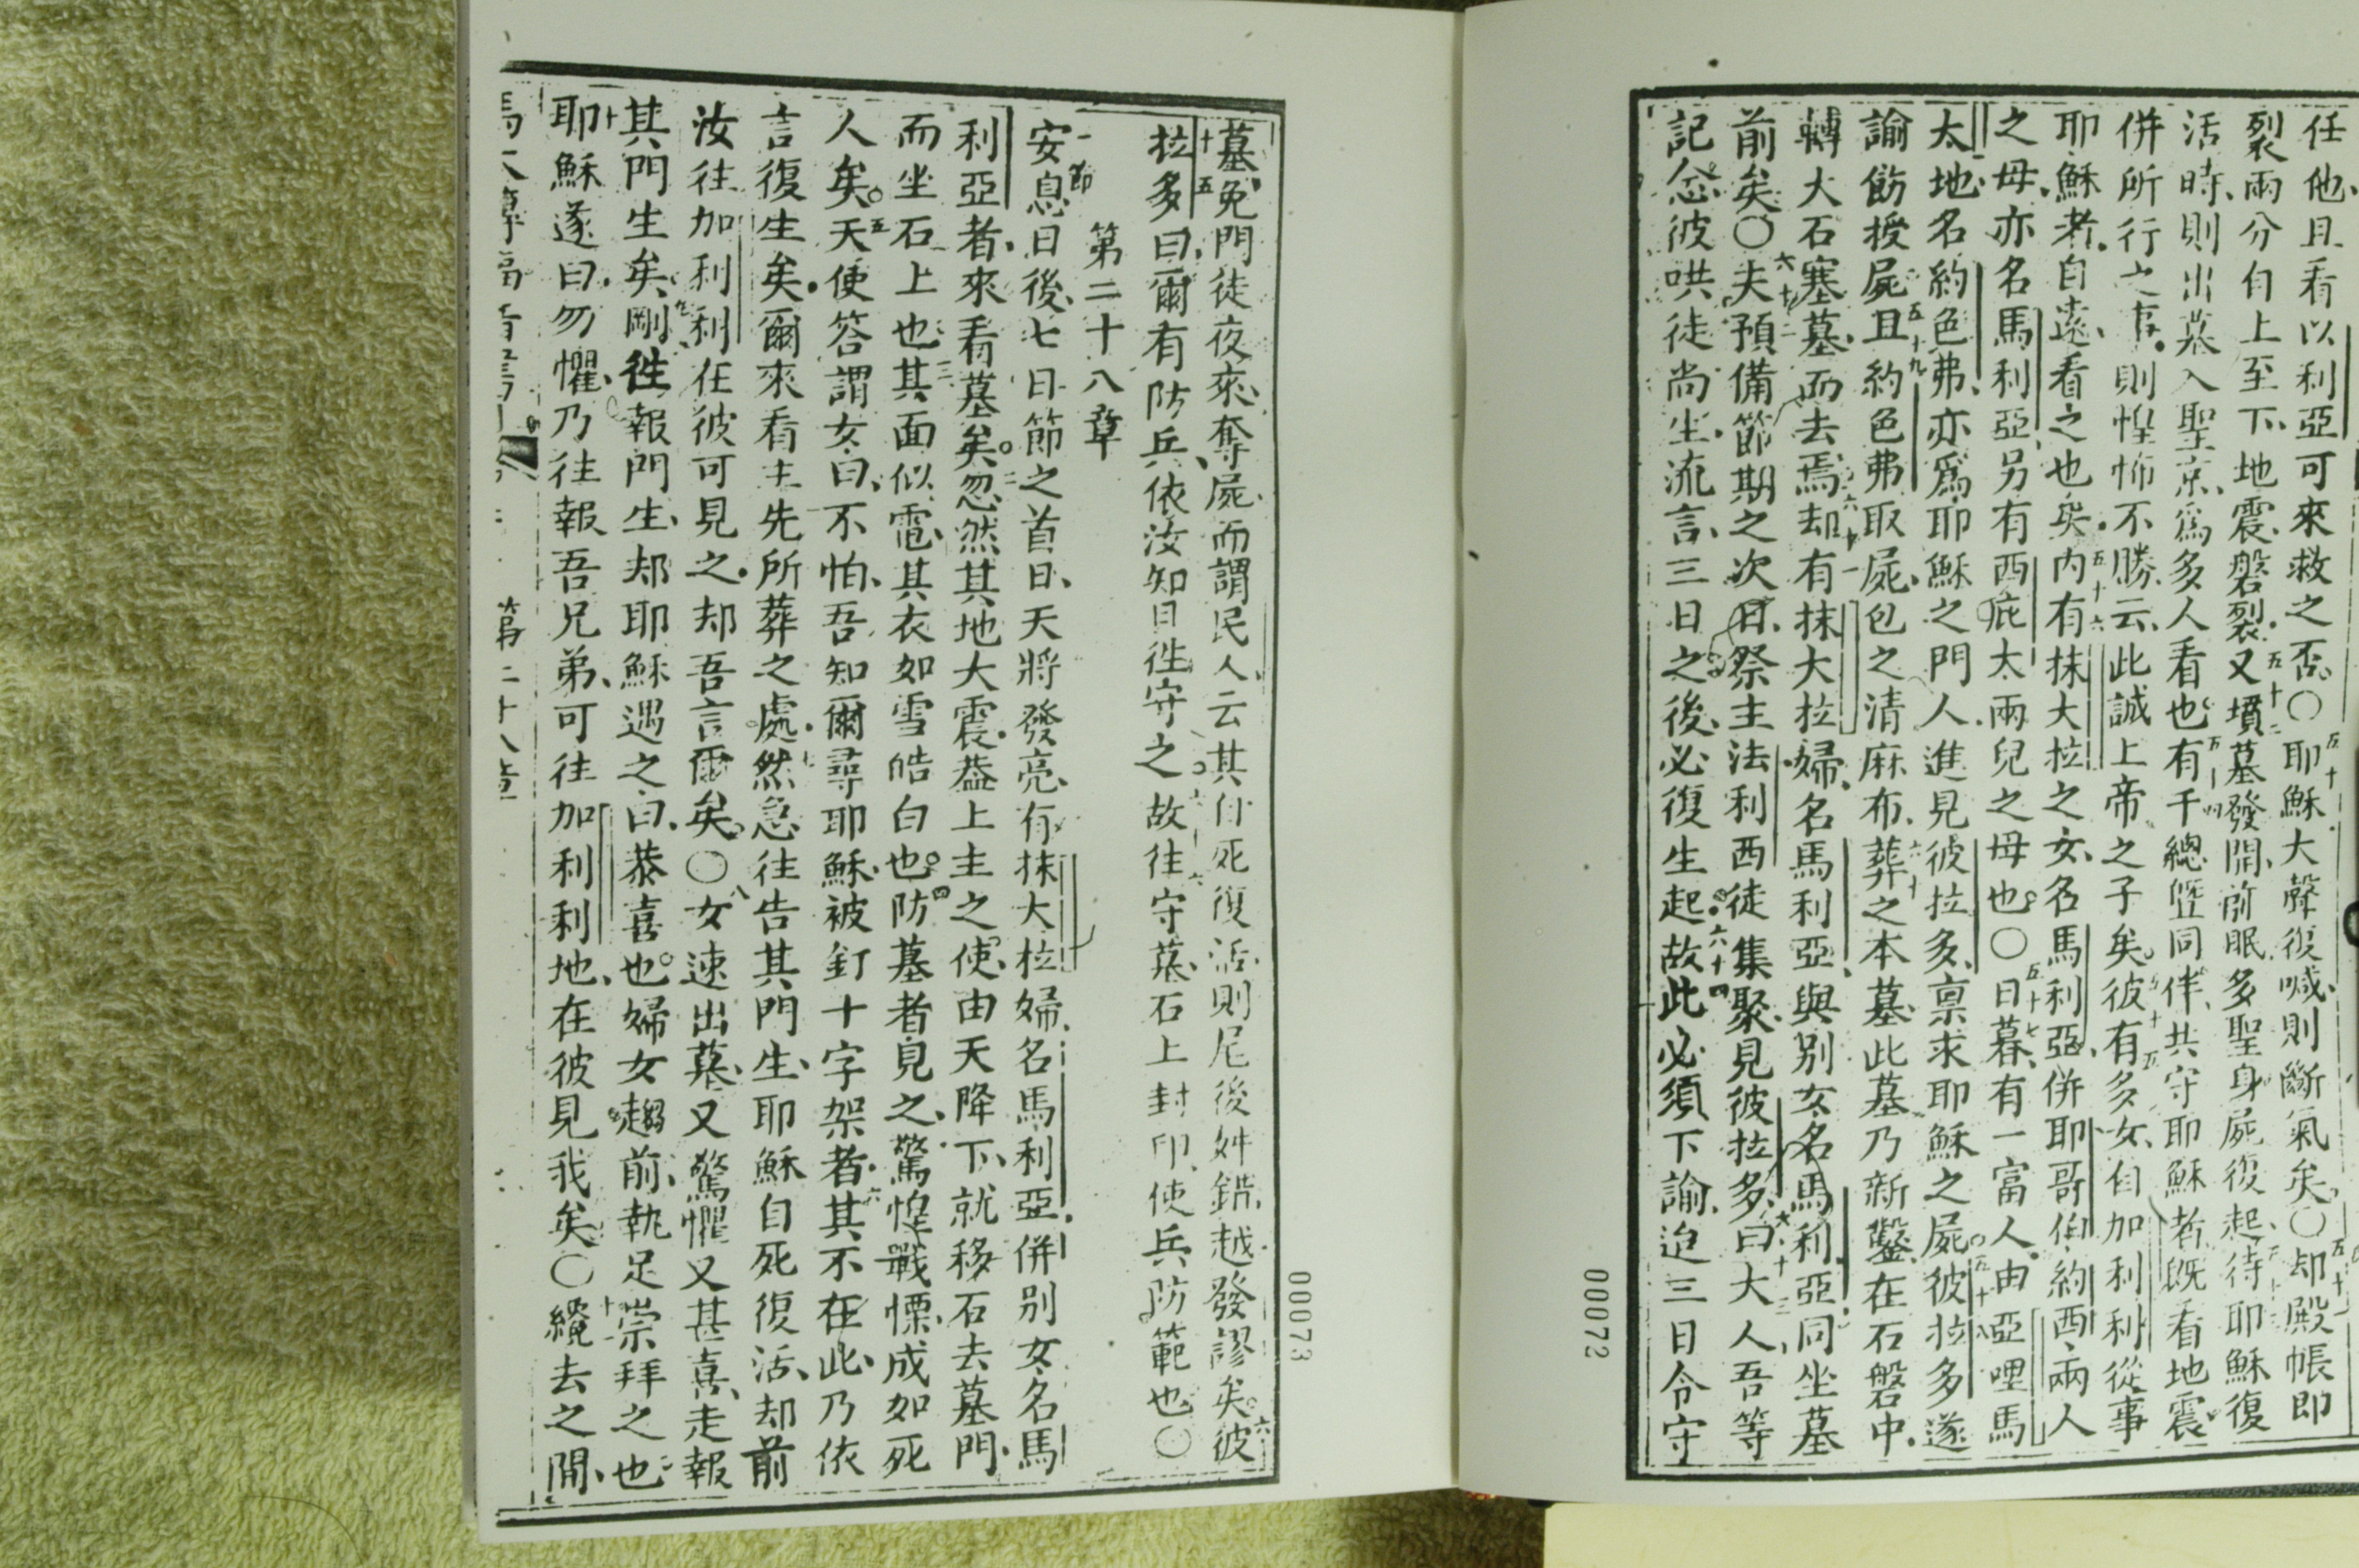 任他且看以利亞可來救之否○五十耶穌大聲復喊則斷氣矣○五十一却殿帳即
裂兩分自上至下地震磐裂五十二又墳墓發開前眠多聖身屍復起五十三待耶穌復
活時則出墓入聖京為多人看也五十四有千總暨同伴共守耶穌者既看地震
併所行之事則惶怖不勝云此誠上帝之子矣五十五彼有多女自加利利從事
耶穌者自遠看之也矣五十六內有抹大拉之女名馬利亞併耶哥伯約西兩人
之母亦名馬利亞另有西庇太兩兒之母也○五十七日暮有一富人由亞哩馬
太地名約色弗亦為耶穌之門人五十八進見彼拉多禀求耶穌之屍彼拉多遂
諭飭授屍五十九且約色弗取屍包之清麻布六十葬之本墓此墓乃新鑿在石磐中
轉大石塞墓而去焉六十一却有抹大拉婦名馬利亞與別女名馬利亞同坐墓
前矣○六十二夫預備節期之次日祭主法利西徒集聚見彼拉多六十三曰大人吾等
記念彼哄徒尚生流言三日之後必復生起六十四故此必須下諭迫三日令守
00072
墓免門徒夜來奪屍而謂民人云其自死復活則尾後奸錯越發謬矣六十五彼
拉多曰爾有防兵依汝知且徃守之六十六故往守墓石上封印使兵防範也○
第二十八章
一節安息日後七日節之首日天將發亮有抹大拉婦名馬利亞併別女名馬
利亞者來看墓矣二忽然其地大震葢上主之使由天降下就移石去墓門
而坐石上也三其面似電其衣如雪皓白也四防墓者見之驚惶戰慄成如死
人矣五天使答謂女曰不怕吾知爾尋耶穌被釘十字架者六其不在此乃依
言復生矣爾來看主先所葬之處七然急往告其門生耶穌自死復活却前
汝往加利利在彼可見之却吾言爾矣○八女速出墓又驚懼又甚喜走報
其門生矣九剛徃報門生却耶穌遇之曰恭喜也婦女趨前執足崇拜之也
十耶穌遂曰勿懼乃往報吾兄弟可往加利利地在彼見我矣○十一纔去之間
第二十八章
00073